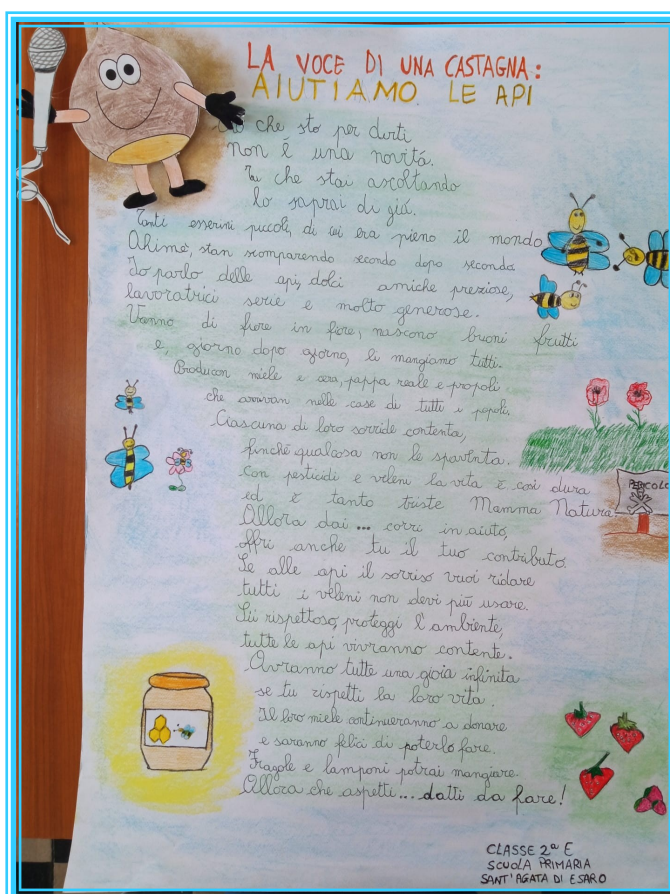 LA VOCE DI UNA CASTAGNA:
AIUTIAMO LE API
Ciò che sto per dirti
non è una novità.
Tu che stai ascoltando
lo saprai di già.
Tanti esserini piccoli, di cui era pieno il mondo
Ahimè, stan scomparendo secondo dopo secondo.
Io parlo delle api, dolci amiche preziose,
lavoratrici serie e molto generose.
Vanno di fiore in fiore, nascono buoni frutti
e, giorno dopo giorno, li mangiamo tutti.
Producon miele e cera, pappa reale e propoli
che arrivan nelle case di tutti i popoli.
Ciascuna di loro sorride contenta,
finchè qualcosa non le spaventa.
Con pesticidi e veleni la vita è così dura
ed è tanto triste Mamma Natura
PERICOLO
Allora dai ... corri in aiuto,
offri anche tu il tuo contributo.
Se alle api il sorriso vuoi ridare
tutti i veleni non devi più usare.
Sii rispettoso, proteggi l'ambiente,
tutte le api vivranno contente.
Avranno tutte una gioia infinita
se tu rispetti la loro vita.
Il loro miele continueranno a donare
e saranno felici di poterlo fare.
Fragole e lamponi potrai mangiare.
Allora che aspetti... datti da fare!
CLASSE 2ª E
SCUOLA PRIMARIA
SANT'AGATA DI ESARO